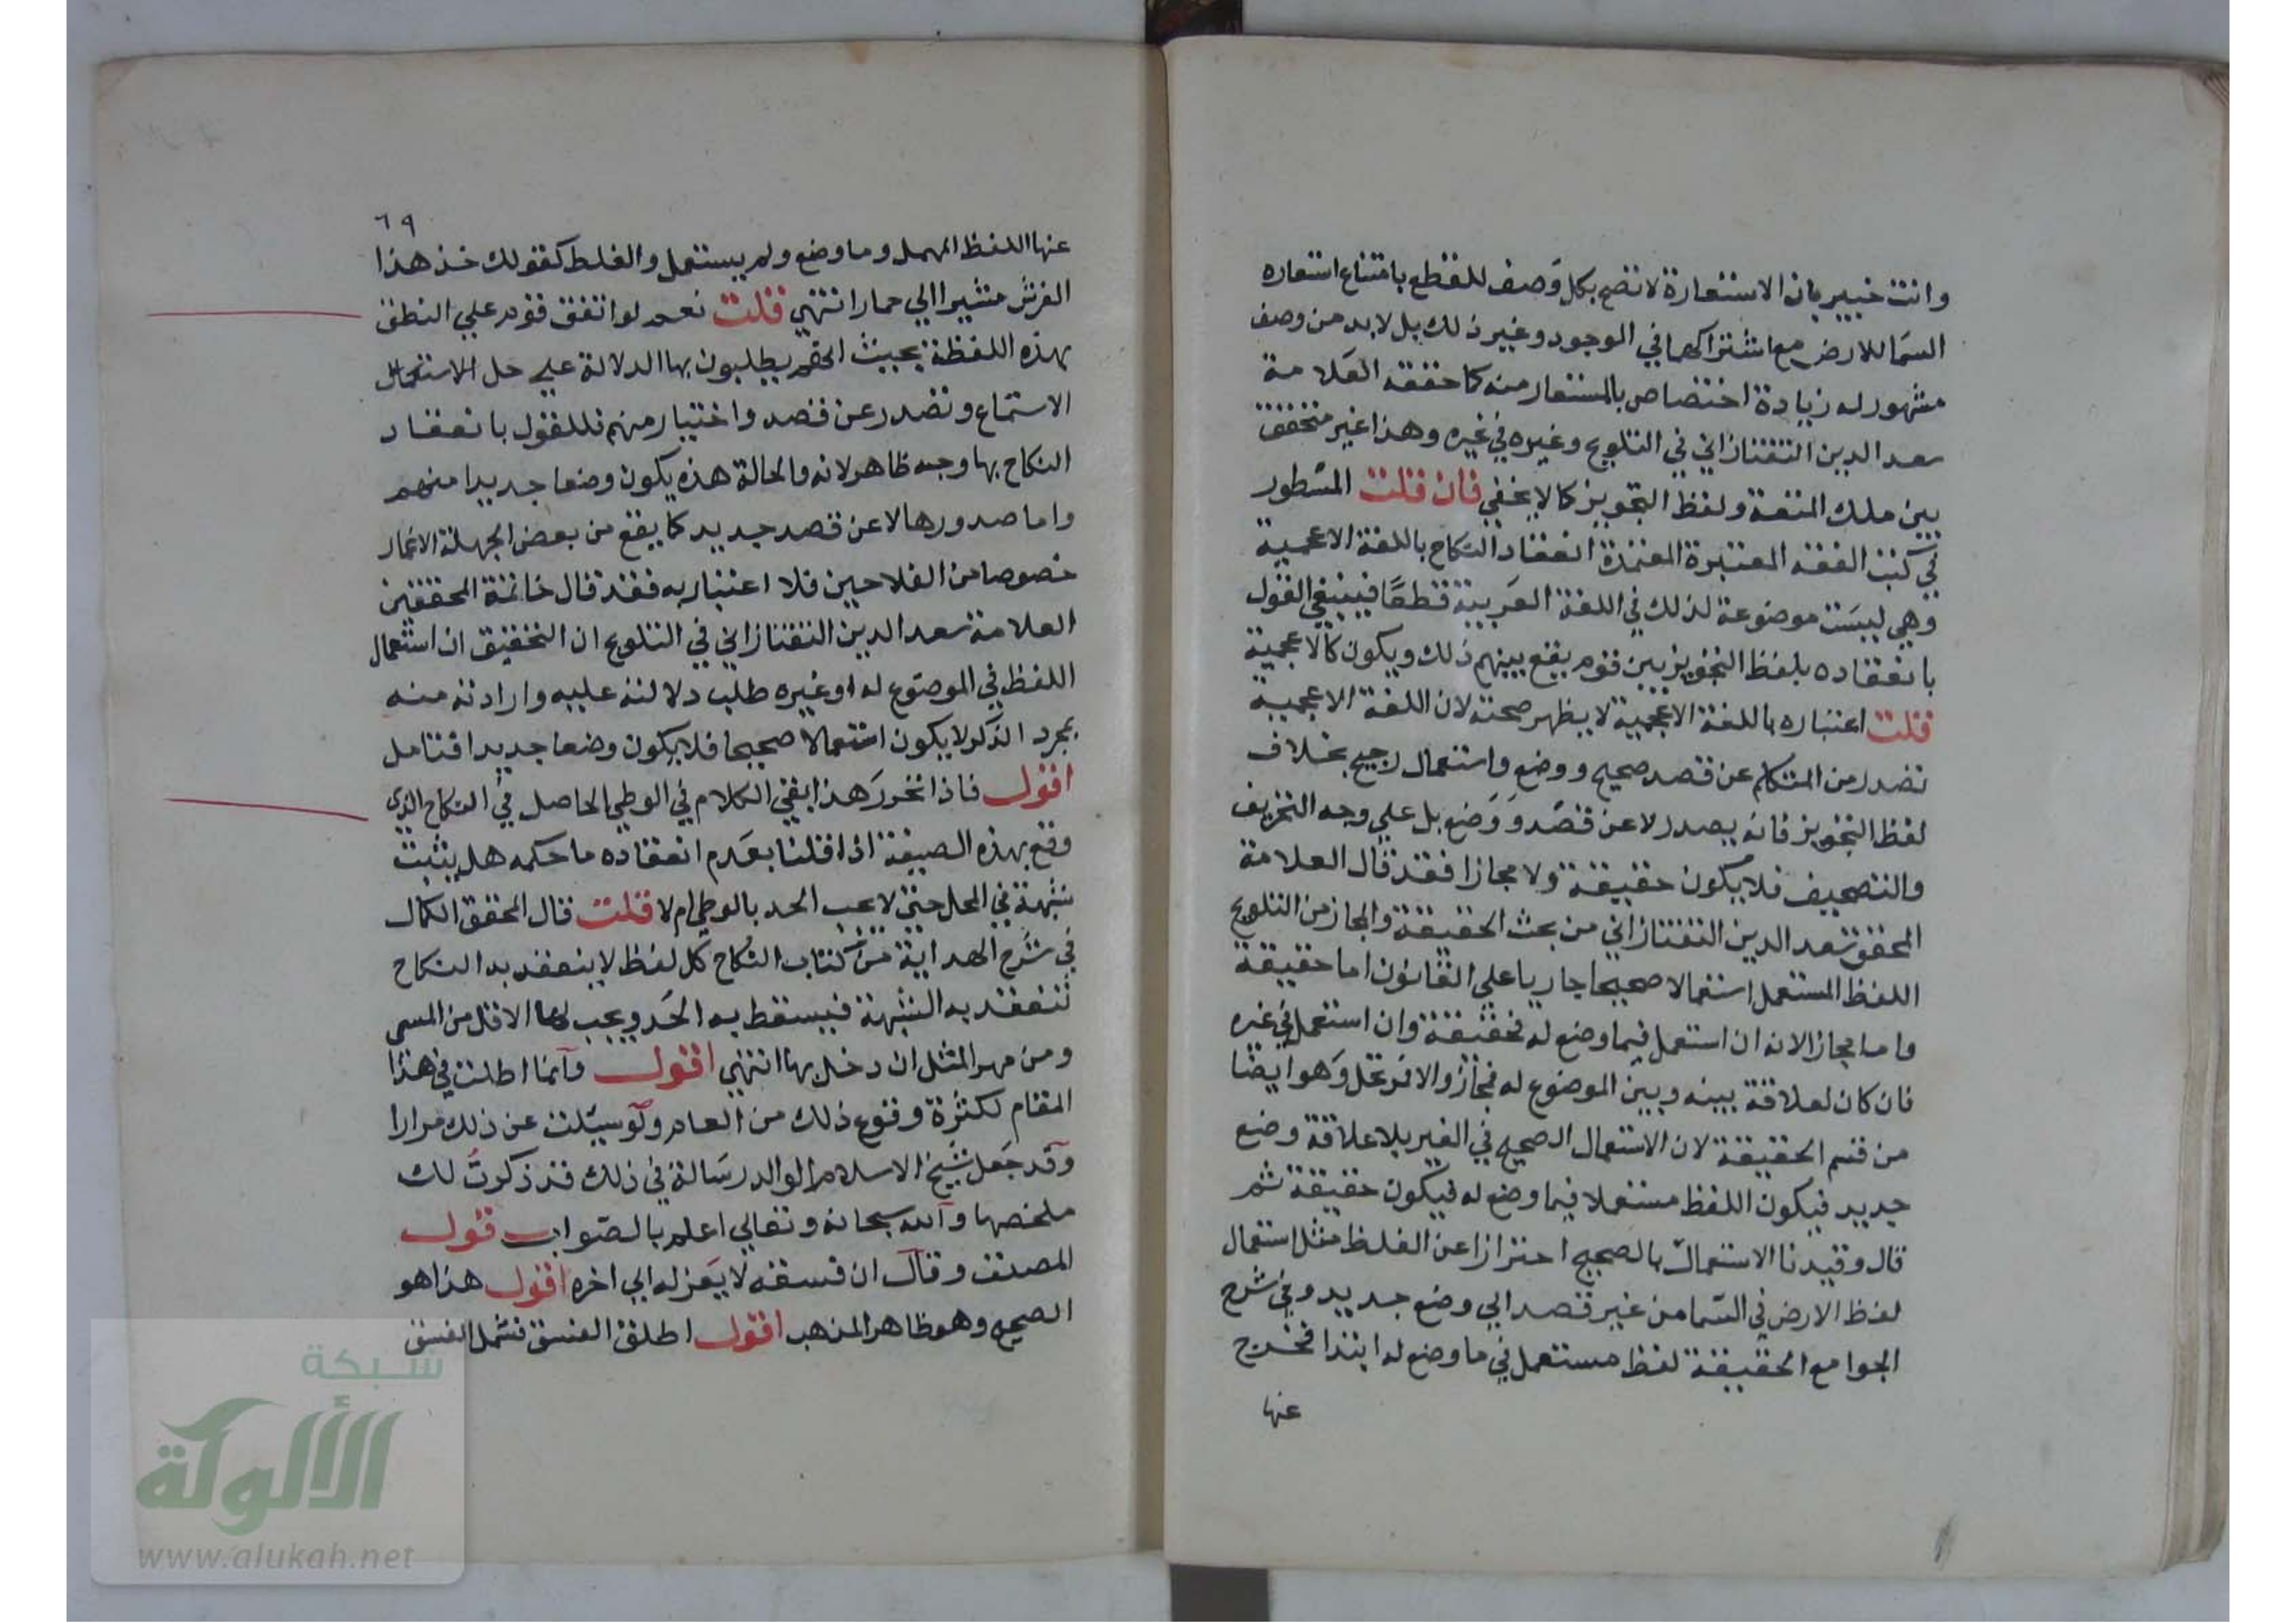 وانت خبير بان الاستعارة لا تصح بكل وصف للقطع بامتناع استعاره
السما للارض مع اشتراكهما في الوجود وغير ذلك بل لا بد من وصف
مشهور له زيادة اختصاص بالمستعار منه كما حققه العلامة
سعد الدين التفتازاني في التلويح وغيره في غيره وهذا غير متحقق
بين ملك المتعة ولفظ التجويز كما لا يخفي فان قلت المسطور
في كتب الفقه المعتبرة المعتمدة انعقاد النكاح باللغة الاعجمية
وهي ليست موضوعة لذلك في اللغة العربية قطعا فينبغي القول
بانعقاده بلفظ التجويز بين قوم يقع بينهم ذلك ويكون كالاعجمية
قلت اعتباره باللغة الاعجمية لا يظهر صحته لان اللغة الاعجمية
تصدر من المتكلم عن قصد صحيح ووضع واستعمال رجيح بخلاف
لفظ التجويز فانه يصدر لا عن قصد ووضع بل علي وجه التحريف
والتصحيف فلا يكون حقيقة ولا مجازا فقد قال العلامة
المحقق سعد الدين التفتازاني من بحث الحقيقة والمجاز من التلويح
اللفظ المستعمل استعمالا صحيحا جاريا علي القانون اما حقيقة
واما مجاز الانه ان استعمل فيما وضع له فحقيقة وان استعمل في غيره
فان كان لعلاقة بينه وبين الموضوع له فمجاز والا فمرتجل وهو ايضا
من قسم الحقيقة لان الاستعمال الصحيح في الغير بلا علاقة وضع
جديد فيكون اللفظ مستعملا فيما وضع له فيكون حقيقة ثم
قال وقيدنا الاستعمال بالصحيح احترازا عن الغلط مثل استعمال
لفظ الارض في السما من غير قصد الي وضع جديد وفي شرح
الجوامع الحقيقة لفظ مستعمل في ما وضع له ابتدا فخرج
عنها
٦٩
عنها اللفظ المهمل وما وضع ولم يستعمل والغلط كقولك خذ هذا
الفرش مشيرا الي حمار انتهي قلت نعم لو اتفق قوم علي النطق
بهذه اللفظة بحيث انهم يطلبون بها الدلالة علي حل الاستعمال
الاستماع وتصدر عن قصد واختيار منهم فللقول بانعقاد
النكاح بها وجه ظاهر لانه والحالة هذه يكون وضعا جديدا منهم
واما صدورها لا عن قصد جديد كما يقع من بعض الجهلة الاغمار
خصوصا من الفلاحين فلا اعتبار به فقد قال خاتمة المحققين
العلامة سعد الدين التفتازاني في التلويح ان التحقيق ان استعمال
اللفظ في الموضوع له او غيره طلب دلالته عليه وارادته منه
بمجرد الذكر لا يكون استعمالا صحيحا فلا يكون وضعا جديدا فتامل
اقول فاذا تحرر هذا بقي الكلام في الوطي الحاصل في النكاح الذي
وقع بهذه الصيغة اذا قلنا بعدم انعقاده ما حكمه هل يثبت
شبهة في المحل حتي لا يجب الحد بالوطي ام لا قلت قال المحقق الكمال
في شرح الهداية من كتاب النكاح كل لفظ لا ينعقد به النكاح
تنعقد به الشبهة فيسقط به الحد ويجب لها الاقل من المسمي
ومن مهر المثل ان دخل بها انتهي اقول وانما اطلت في هذا
المقام لكثرة وقوع ذلك من العام ولو سيلت عن ذلك مرارا
وقد جعل شيخ الاسلام الوالد رسالة في ذلك قد ذكرت لك
ملخصها والله سبحانه وتعالي اعلم بالصواب قول
المصنف وقال ان فسقه لا يعزله الي اخره اقول هذا هو
الصحيح وهو ظاهر المذهب اقول اطلق الفسق فشمل الفسق
شبكة
الألوكة
www.alukah.net